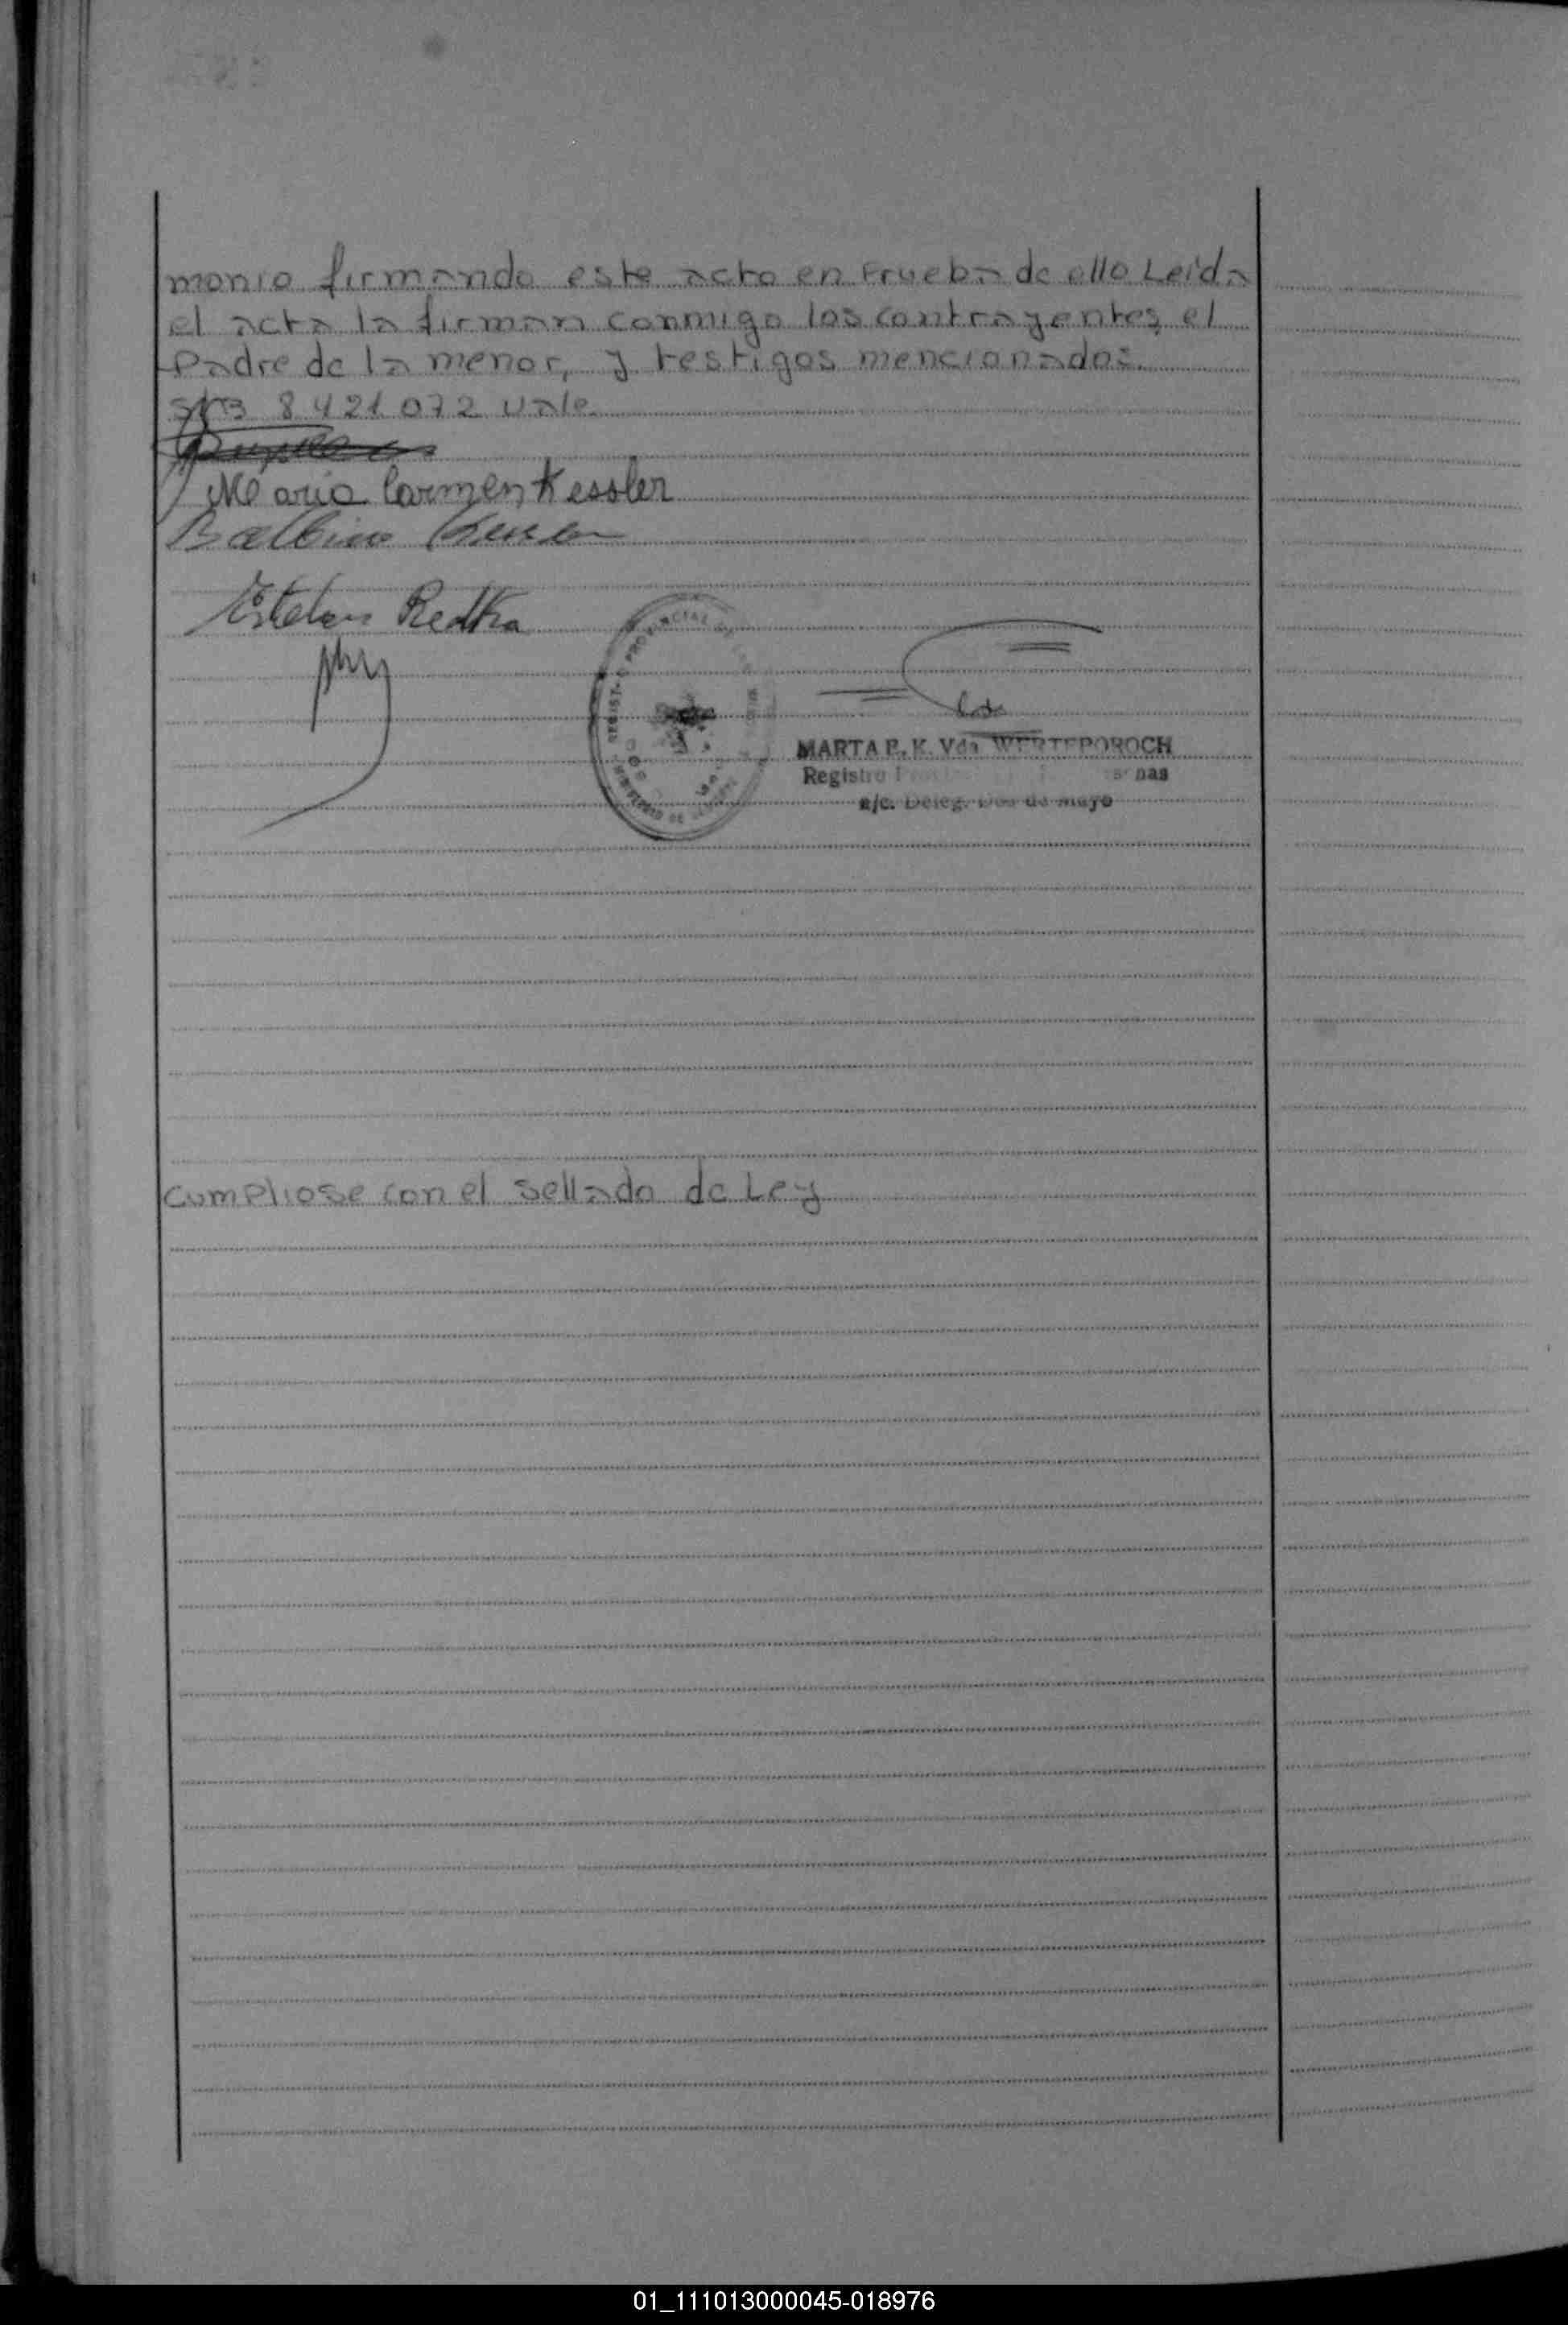 monio firmando este acto en Prueba de ello Leida
el acta la firman conmigo los contrayentes, el
Padre de la menor, y testigos mencionados.
S/B 8421072 vale
Maria Carmen Kessler
Balbino
Esteban Redka
MARTA E. K. Vda. WERTEPOROCH
Registro
a/c. Deleg. Dos de Mayo
cumpliose con el sellado de Ley
01_111013000045-018976